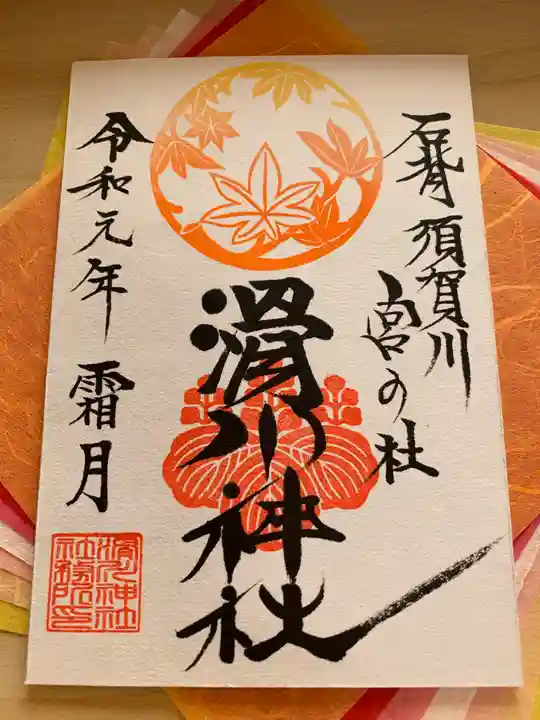 石背 須賀川
宮の杜
滑川神社
令和元年 霜月
滑川神社
社務所印